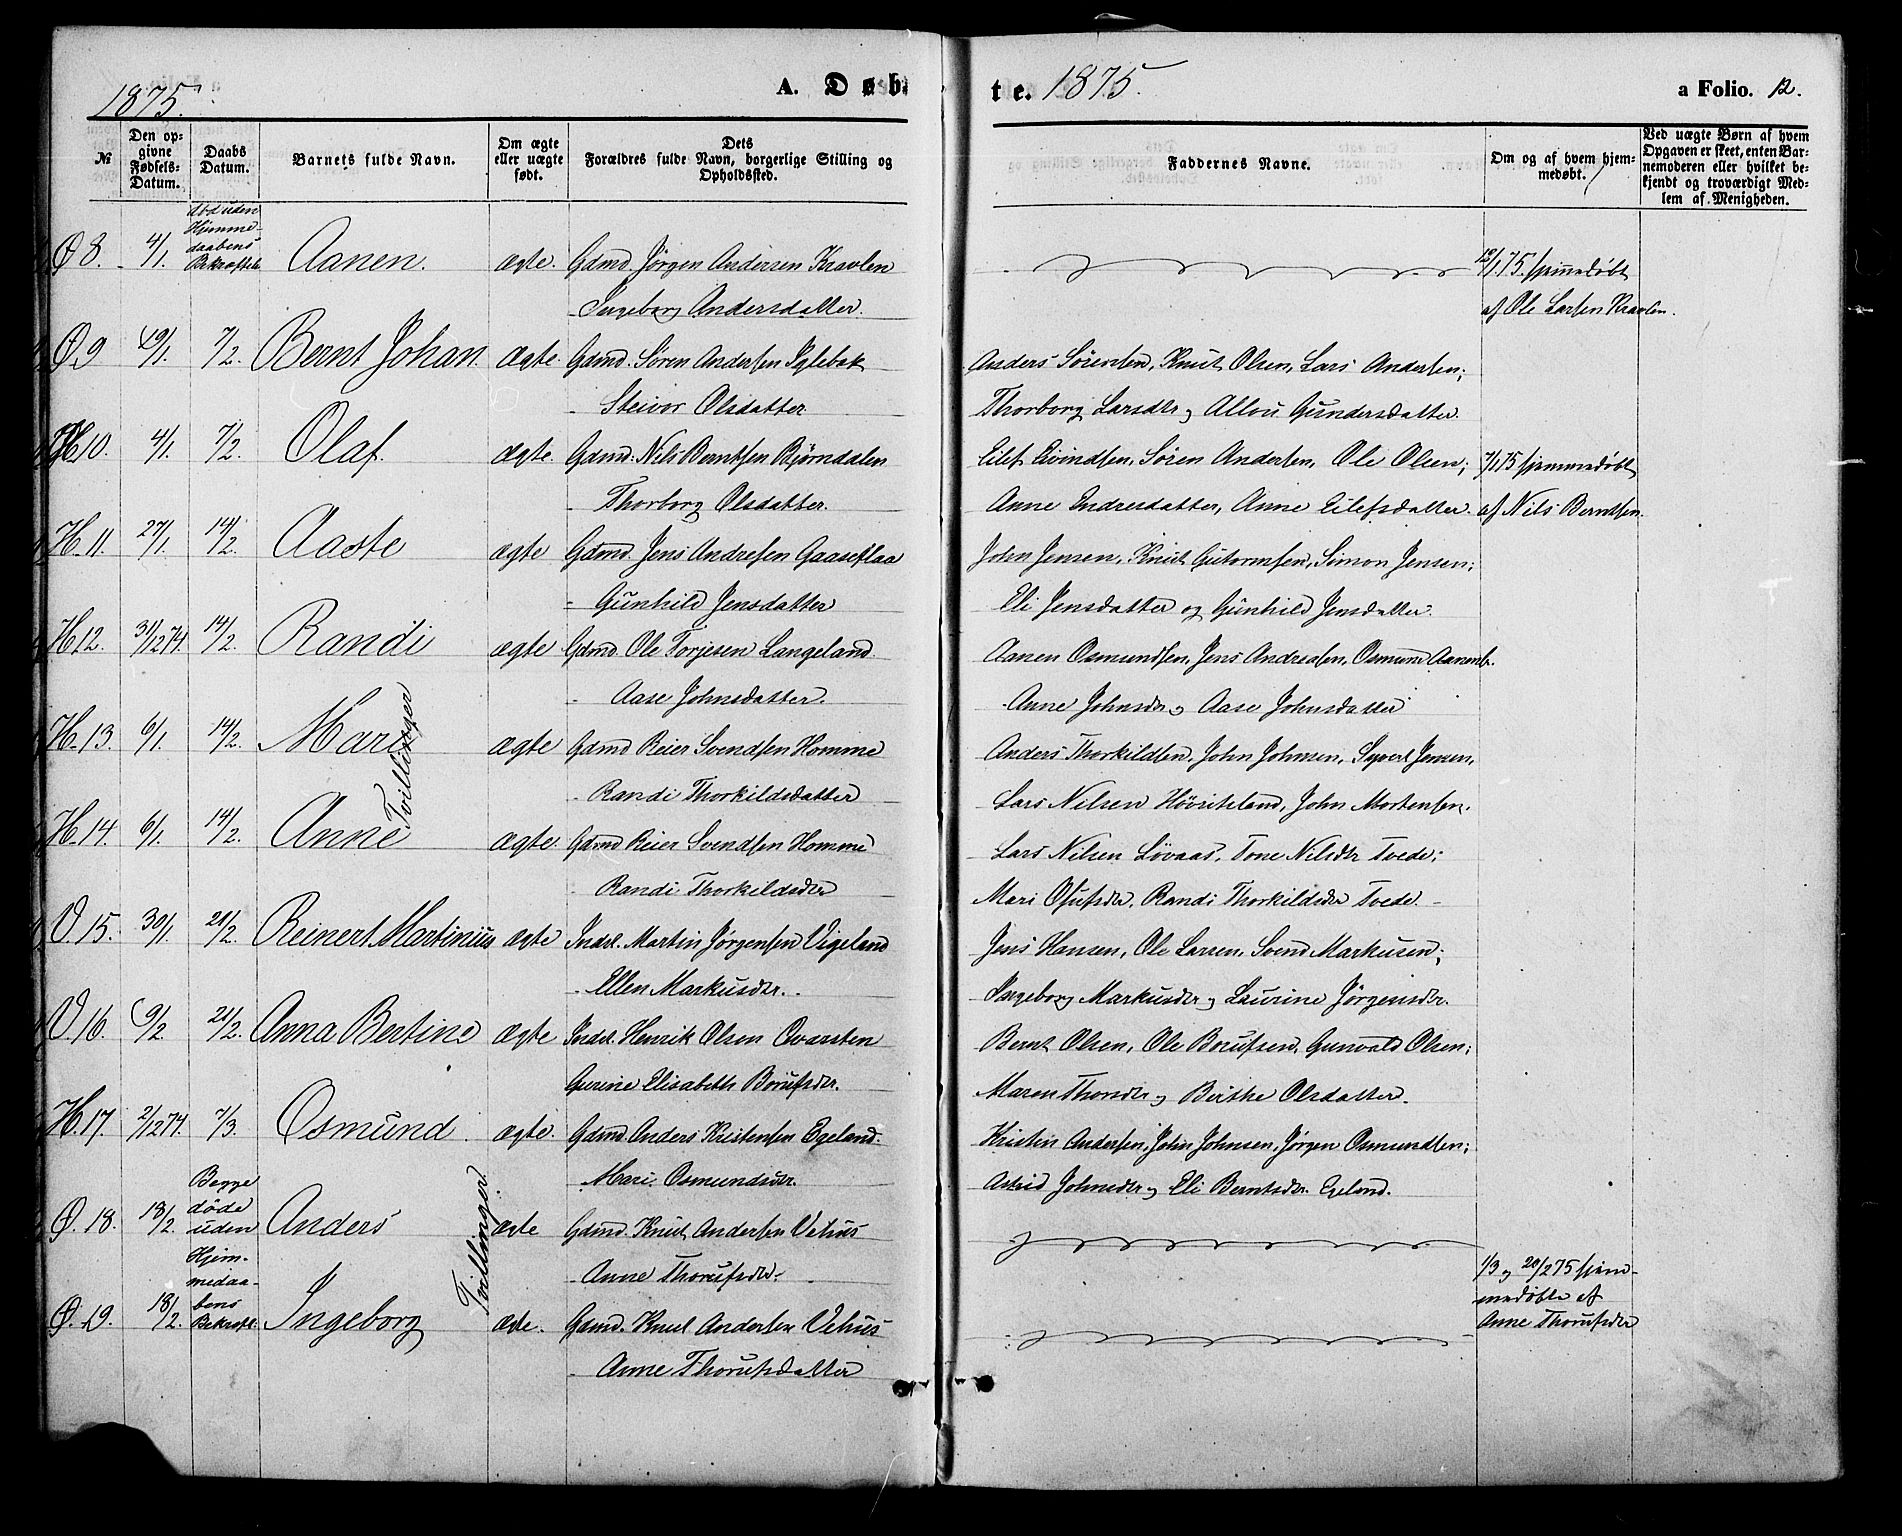 1875.
A. Døb
te. 1875.
a Folio. 12.
№
Den opgivne Fødsels-Datum.
Daabs Datum.
Barnets fulde Navn.
Om ægte eller uægte født.
Dets Forældres fulde Navn, borgerlige Stilling og Opholdssted.
Faddernes Navne.
Om og af hvem hjemmedøbt.
Ved uægte Børn af hvem Opgaven er skeet, enten Barnemoderen eller hvilket bekjendt og troværdigt Medlem af Menigheden.
Ø 8. 4/1. død uden Hjemmedaabens Bekræftel. Aanen. ægte. Gdmd. Jørgen Andersen Kravlen 12/1 75. hjemmedøbt
Ingeborg Andersdatter. af Ole Larsen Kravlen.
Ø 9 19/1. 7/2. Bernt Johan. ægte. Gdmd. Søren Andersen Iglebæk Anders Sørensen, Knut Olsen, Lars Andersen;
Steivor Olsdatter Thorborg Larsdtr og Allou Gundersdatter.
H. 10. 4/1. 7/2. Olaf. ægte. Gdmd. Nils Berntsen Bjørndalen Eilef Eivindsen, Søren Andersen, Ole Olsen; 7/1 75 hjemmedøbt
Thorborg Olsdatter. Anne Endresdatter, Anne Eilefsdatter. af Nils Berntsen.
H. 11. 27/1. 14/2. Aaste ægte Gdmd. Jens Andresen Gaaseflaa John Jensen, Knut Gutormsen, Simon Jensen;
Gunhild Jensdatter Eli Jensdatter og Gunhild Jensdatter.
H. 12. 31/12 74. 14/2. Randi ægte Gdmd. Ole Torjesen Langeland. Aanen Osmundsen, Jens Andreasen, Osmund Aanens.
Aase Johnsdatter. Anne Johnsdtr og Aase Johnsdatter
H. 13. 6/1. 14/2. Mari Tvillinger ægte Gdmd Reier Svendsen Homme Anders Thorkildsen, John Johnsen, Syvert Jensen,
Randi Thorkildsdatter Lars Nilsen Høviteland, John Mortensen.
H. 14. 6/1. 14/2. Anne ægte. Gdmd Reier Svendsen Homme Lars Nilsen Løvaas, Tone Nilsdtr Tvede;
Randi Thorkildsdtr Mari Ofufsdtr, Randi Thorkildsdtr Tvede.
V. 15. 30/1. 21/2. Reinert Martinius ægte Indst. Martin Jørgensen Vigeland Jens Hansen, Ole Larsen, Svend Markusen;
Ellen Markusdtr. Ingeborg Markusdtr og Laurine Jørgensdtr.
V. 16. 9/2. 21/2. Anna Bertine ægte Indst. Henrik Olsen Qvarsten Bernt Olsen, Ole Borufsen, Gunvald Olsen;
Gurine Elisabeth Borufsdtr. Maren Thorsdtr og Birthe Olsdatter.
H. 17. 2/12 74. 7/3. Osmund. ægte. Gdmd. Anders Kristensen Egeland. Kristen Andersen, John Johnsen, Jørgen Osmundsen;
Mari Osmundsdtr. Astrid Johnsdtr og Eli Berntsdtr. Egeland.
Ø. 18. 18/2. Begge døde uden Hjemmedaabens Bekræft. Anders Tvillinger. ægte Gdmd. Knut Andersen Vehus
Anne Thorufsdtr. 1/3 og 20/2 75 hjemmedøbte af
Ø. 19. 18/2. Ingeborg ægte. Gdmd. Knut Andersen Vehus Anne Thorufsdtr
Anne Thorufsdatter